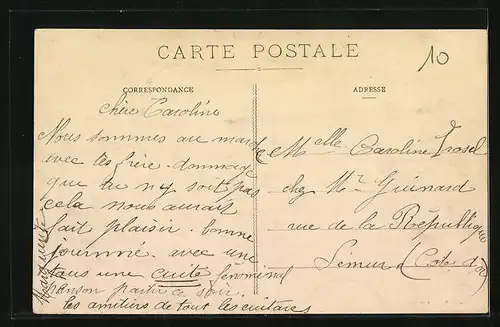 CARTE POSTALE
10
CORRESPONDANCE
ADRESSE
chère Caroline
Nous sommes au marché
avec les frère. dommage
que tu n'y soit pas
cela nous aurait
fait plaisir. bonne
journnié. avec une
tous une cuite fenominal
penson partir ce soir.
les amitiers de tout les cuitares
Marguerite
Melle Caroline
chez Mr Guénard
rue de la République
Semur (Cote d'or)